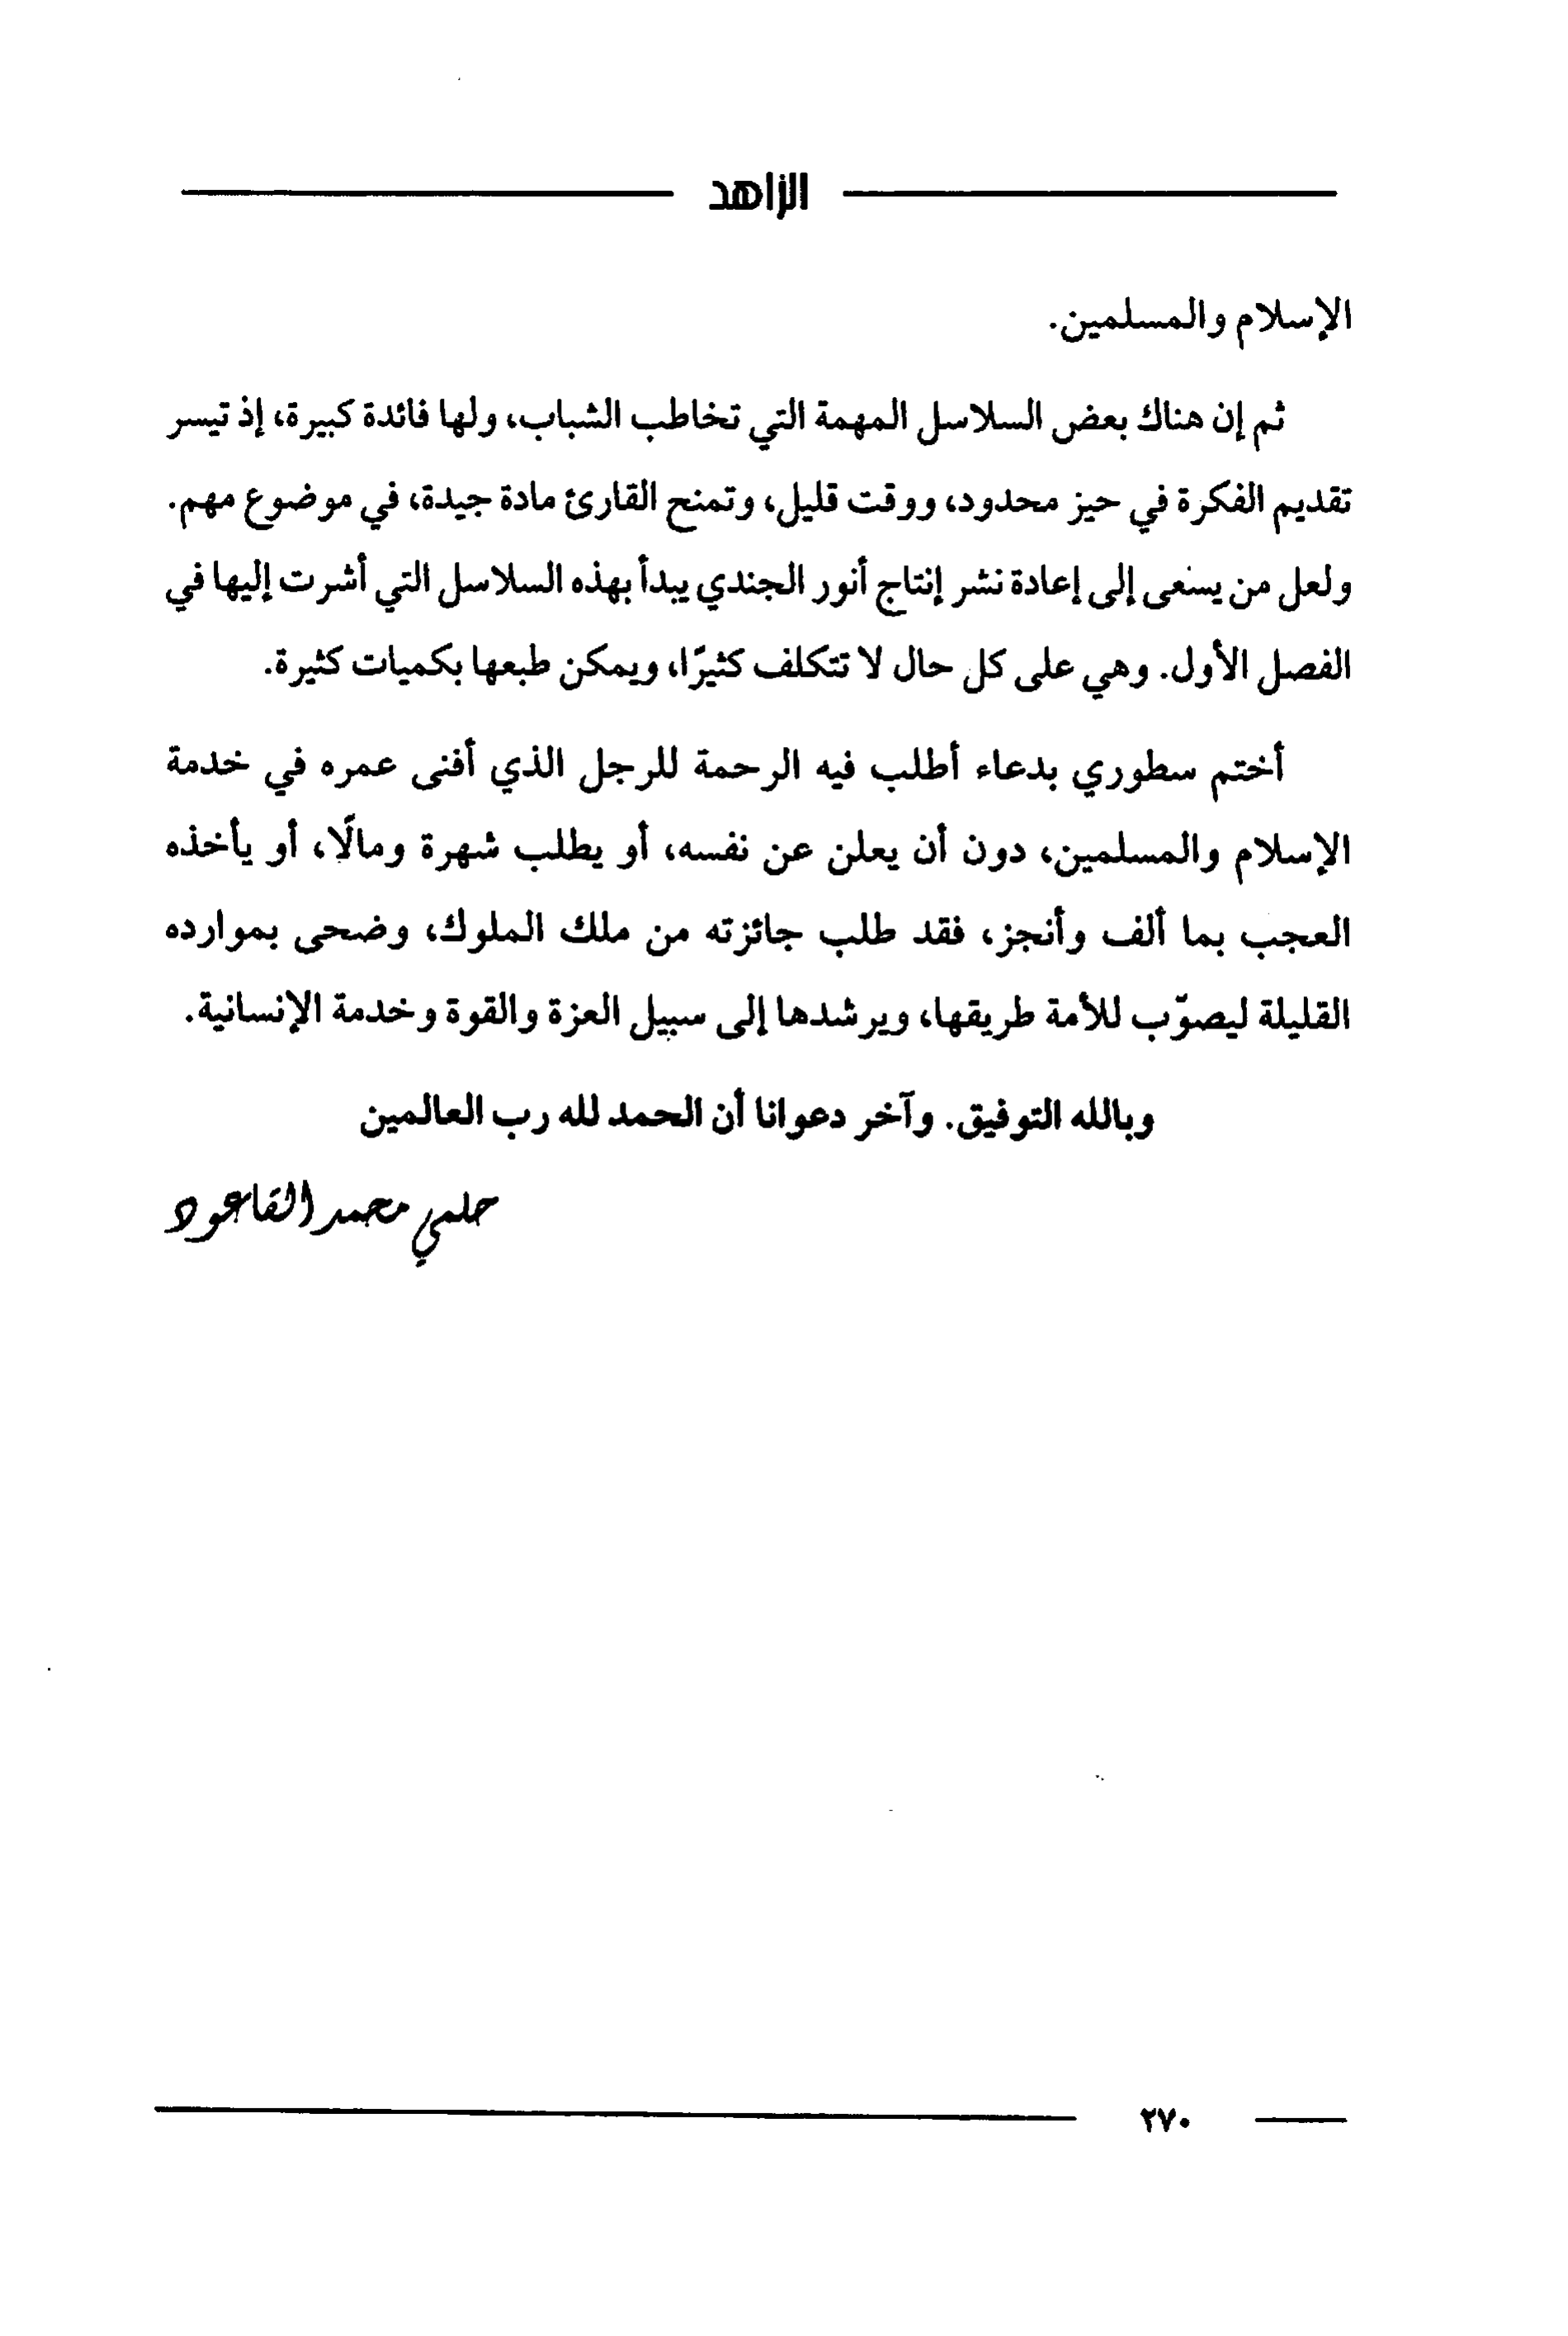 الزاهد
الإسلام والمسلمين.
ثم إن هناك بعض السلاسل المهمة التي تخاطب الشباب، ولها فائدة كبيرة، إذ تيسر
تقديم الفكرة في حيز محدود، ووقت قليل، وتمنح القارئ مادة جيدة، في موضوع مهم.
ولعل من يسعى إلى إعادة نشر إنتاج أنور الجندي يبدأ بهذه السلاسل التي أشرت إليها في
الفصل الأول. وهي على كل حال لا تتكلف كثيرًا، ويمكن طبعها بكميات كثيرة.
أختم سطوري بدعاء أطلب فيه الرحمة للرجل الذي أفنى عمره في خدمة
الإسلام والمسلمين، دون أن يعلن عن نفسه، أو يطلب شهرة ومالًا، أو يأخذه
العجب بما ألف وأنجز، فقد طلب جائزته من ملك الملوك، وضحى بموارده
القليلة ليصوّب للأمة طريقها، ويرشدها إلى سبيل العزة والقوة وخدمة الإنسانية.
وبالله التوفيق. وآخر دعوانا أن الحمد لله رب العالمين
حلمي محمد القاعود
٢٧٠